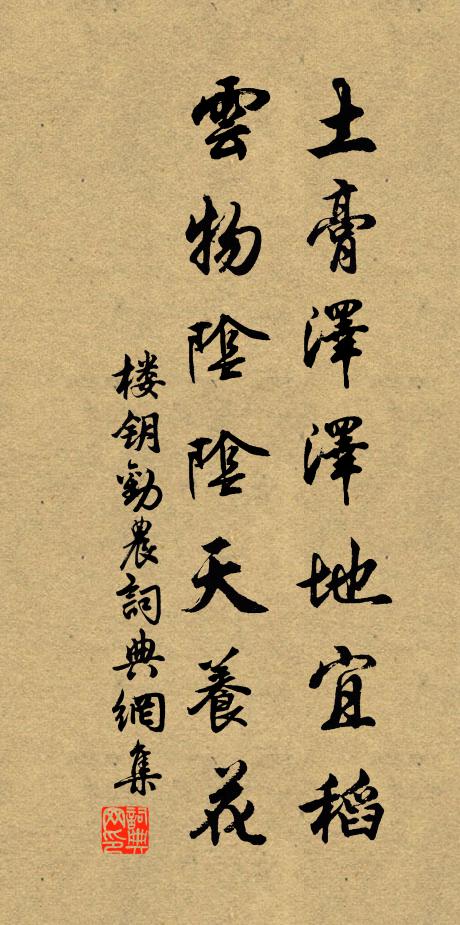 土膏澤澤地宜稻
雲物陰陰天養花
楼钥勸農詞典網集
詞典
网印